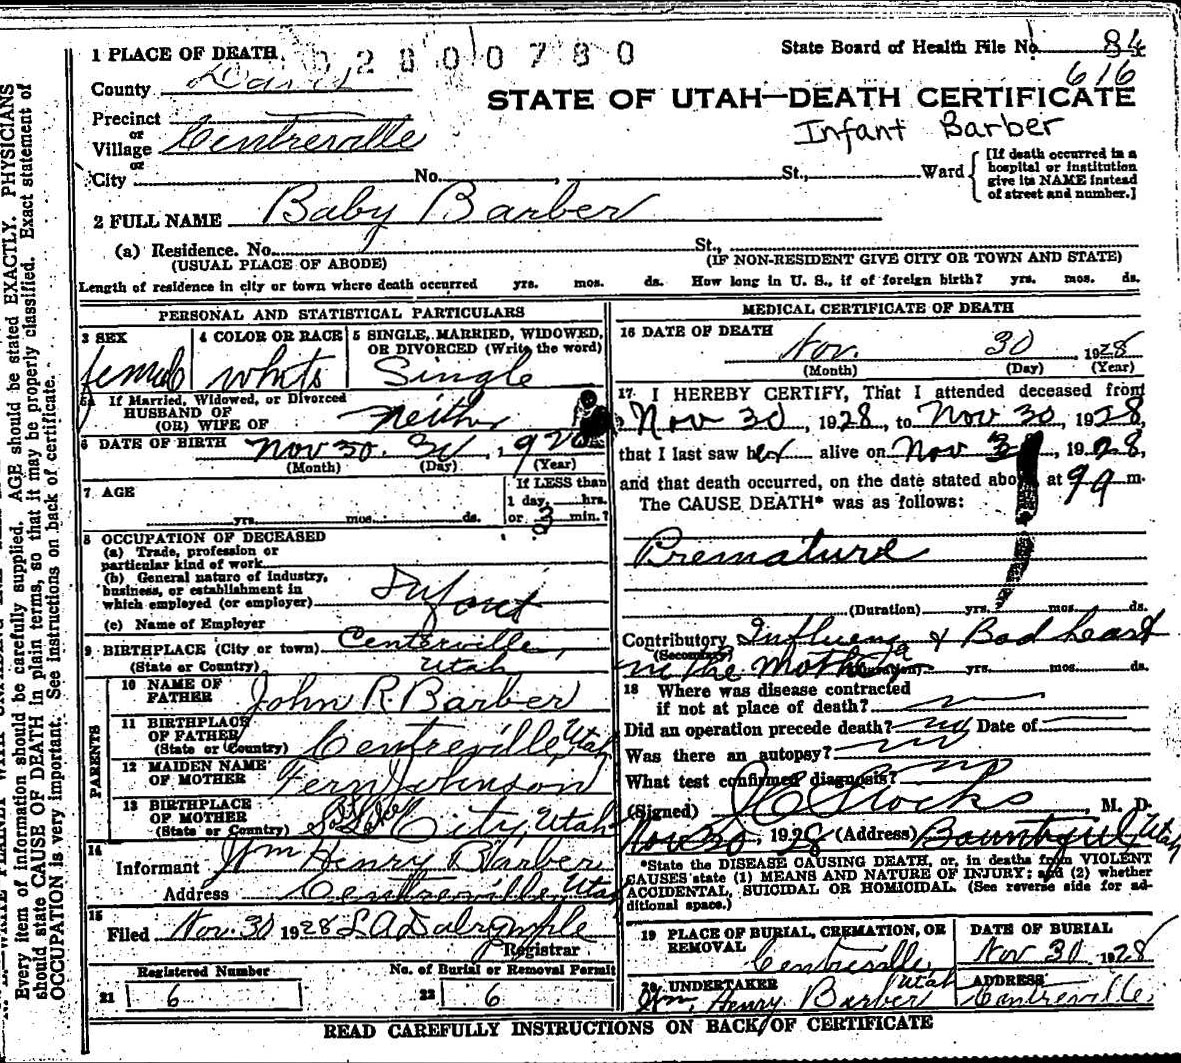 1 PLACE OF DEATH 02800780 State Board of Health File No. 84
County Davis 616
STATE OF UTAH—DEATH CERTIFICATE
Precinct
or
Village Centreville Infant Barber
or
City No. , St., Ward { [If death occurred in a hospital or institution give its NAME instead of street and number.]
2 FULL NAME Baby Barber
(a) Residence. No. St.,
(USUAL PLACE OF ABODE) (IF NON-RESIDENT GIVE CITY OR TOWN AND STATE)
Length of residence in city or town where death occurred yrs. mos. ds. How long in U. S., if of foreign birth? yrs. mos. ds.
PERSONAL AND STATISTICAL PARTICULARS
3 SEX 4 COLOR OR RACE 5 SINGLE, MARRIED, WIDOWED,
OR DIVORCED (Write the word)
female white Single
5A If Married, Widowed, or Divorced
HUSBAND OF
(OR) WIFE OF neither
6 DATE OF BIRTH Nov 30. 192
(Month) (Day) (Year)
7 AGE If LESS than
1 day, hrs.
yrs. mos. ds. or min.?
8 OCCUPATION OF DECEASED
(a) Trade, profession or
particular kind of work
(b) General nature of industry,
business, or establishment in
which employed (or employer) Infant
(c) Name of Employer
9 BIRTHPLACE (City or town) Centerville,
(State or Country) Utah
PARENTS
10 NAME OF
FATHER John R. Barber
11 BIRTHPLACE
OF FATHER
(State or Country) Centreville Utah
12 MAIDEN NAME
OF MOTHER Fern Johnson
13 BIRTHPLACE
OF MOTHER
(State or Country) Salt Lake City, Utah
14
Informant Wm Henry Barber
Address Centreville, Utah
15
Filed Nov. 30 1928 L A Dalrymple
Registrar
Registered Number No. of Burial or Removal Permit
21 6 22 6
MEDICAL CERTIFICATE OF DEATH
16 DATE OF DEATH
Nov. 30 , 1928
(Month) (Day) (Year)
17 I HEREBY CERTIFY, That I attended deceased from
Nov 30 , 1928, to Nov 30, 1928,
that I last saw her alive on Nov 3 , 1928,
and that death occurred, on the date stated above at 9 a m.
The CAUSE DEATH* was as follows:
Premature
(Duration) yrs. mos. ds.
Contributory Influenza & Bad heart
(Secondary)
in the Mother (Duration) yrs. mos. ds.
18 Where was disease contracted
if not at place of death?
Did an operation precede death? no Date of
Was there an autopsy? no
What test confirmed diagnosis? no
(Signed) J C Stocks , M. D.
Nov 30, 1928 (Address) Bountiful, Utah
*State the DISEASE CAUSING DEATH, or, in deaths from VIOLENT
CAUSES state (1) MEANS AND NATURE OF INJURY; and (2) whether
ACCIDENTAL, SUICIDAL OR HOMICIDAL. (See reverse side for ad-
ditional space.)
19 PLACE OF BURIAL, CREMATION, OR
REMOVAL
Centreville, Utah
DATE OF BURIAL
Nov 30 1928
20 UNDERTAKER
Wm. Henry Barber
ADDRESS
Centreville
READ CAREFULLY INSTRUCTIONS ON BACK OF CERTIFICATE
Every item of information should be carefully supplied. AGE should be stated EXACTLY. PHYSICIANS
should state CAUSE OF DEATH in plain terms, so that it may be properly classified. Exact statement of
OCCUPATION is very important. See instructions on back of certificate.